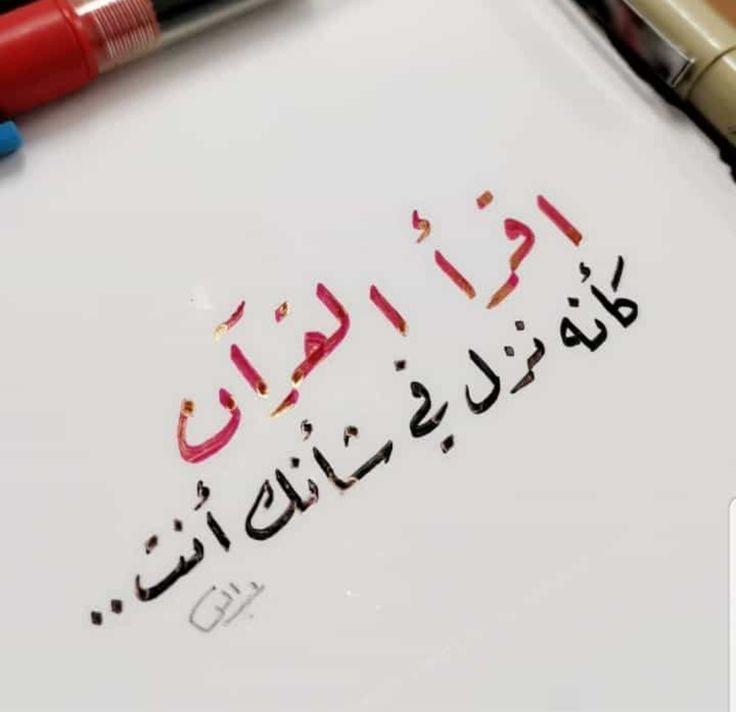 اقرأ القرآن
كأنه نزل في شأنك أنت..